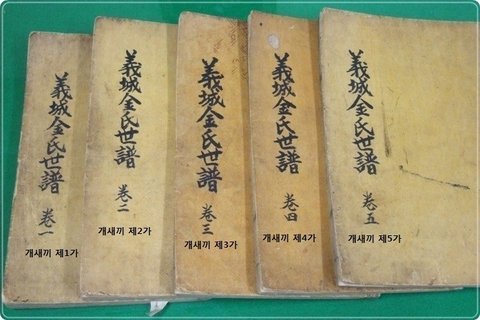 義城金氏世譜 卷一
개새끼 제1가
義城金氏世譜 卷二
개새끼 제2가
義城金氏世譜 卷三
개새끼 제3가
義城金氏世譜 卷四
개새끼 제4가
義城金氏世譜 卷五
개새끼 제5가